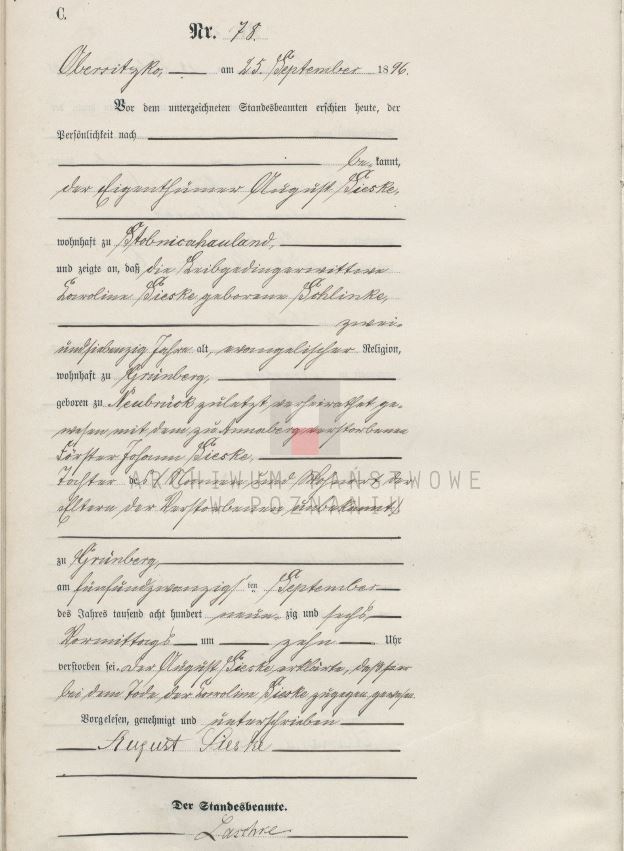 C.
Nr. 78.
Obersitzko, am 25. September 1896.
Vor dem unterzeichneten Standesbeamten erschien heute, der
Persönlichkeit nach
be- kannt,
der Eigenthümer August Sieske,
wohnhaft zu Stobnicahauland,
und zeigte an, daß die Leibgedingerwittwe
Caroline Sieske, geborene Schlinke,
zwei-
undsiebenzig Jahre alt, evangelischer Religion,
wohnhaft zu Grünberg,
geboren zu Neubrück zuletzt verheirathet ge-
wesen mit dem zu Annaberg verstorbenen
Förster Johann Sieske,
Tochter des (Namen und Wohnort der
Eltern der Verstorbenen unbekannt)
ARCHIWUM PAŃSTWOWE
W POZNANIU
zu Grünberg,
am fünfundzwanzigsten September
des Jahres tausend acht hundert neun- zig und sechs
Vormittags um zehn Uhr
verstorben sei. Der August Sieske erklärte, daß er
bei dem Tode der Caroline Sieske zugegen gewesen.
Vorgelesen, genehmigt und unterschrieben
August Sieske
Der Standesbeamte.
Laschke